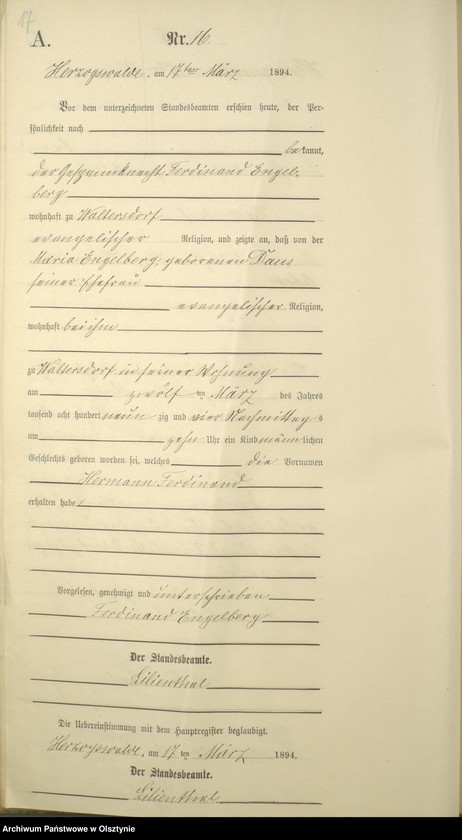 17
A.
Nr. 16.
Herzogswalde, am 17ten März 1894.
Vor dem unterzeichneten Standesbeamten erschien heute, der Per-
sönlichkeit nach
bekannt,
der Gespannknecht Ferdinand Engel-
berg
wohnhaft zu Waltersdorf
evangelischer Religion, und zeigte an, daß von der
Maria Engelberg, geborenen Daus
seiner Ehefrau
evangelischer Religion,
wohnhaft bei ihm
zu Waltersdorf in seiner Wohnung
am zwölf ten März des Jahres
tausend acht hundert neun zig und vier Nachmittags
um zehn Uhr ein Kind männlichen
Geschlechts geboren worden sei, welches die Vornamen
Hermann Ferdinand
erhalten habe
Vorgelesen, genehmigt und unterschrieben
Ferdinand Engelberg
Der Standesbeamte.
Lilienthal
Die Uebereinstimmung mit dem Hauptregister beglaubigt.
Herzogswalde, am 17 ten März 1894.
Der Standesbeamte.
Lilienthal
Archiwum Państwowe w Olsztynie